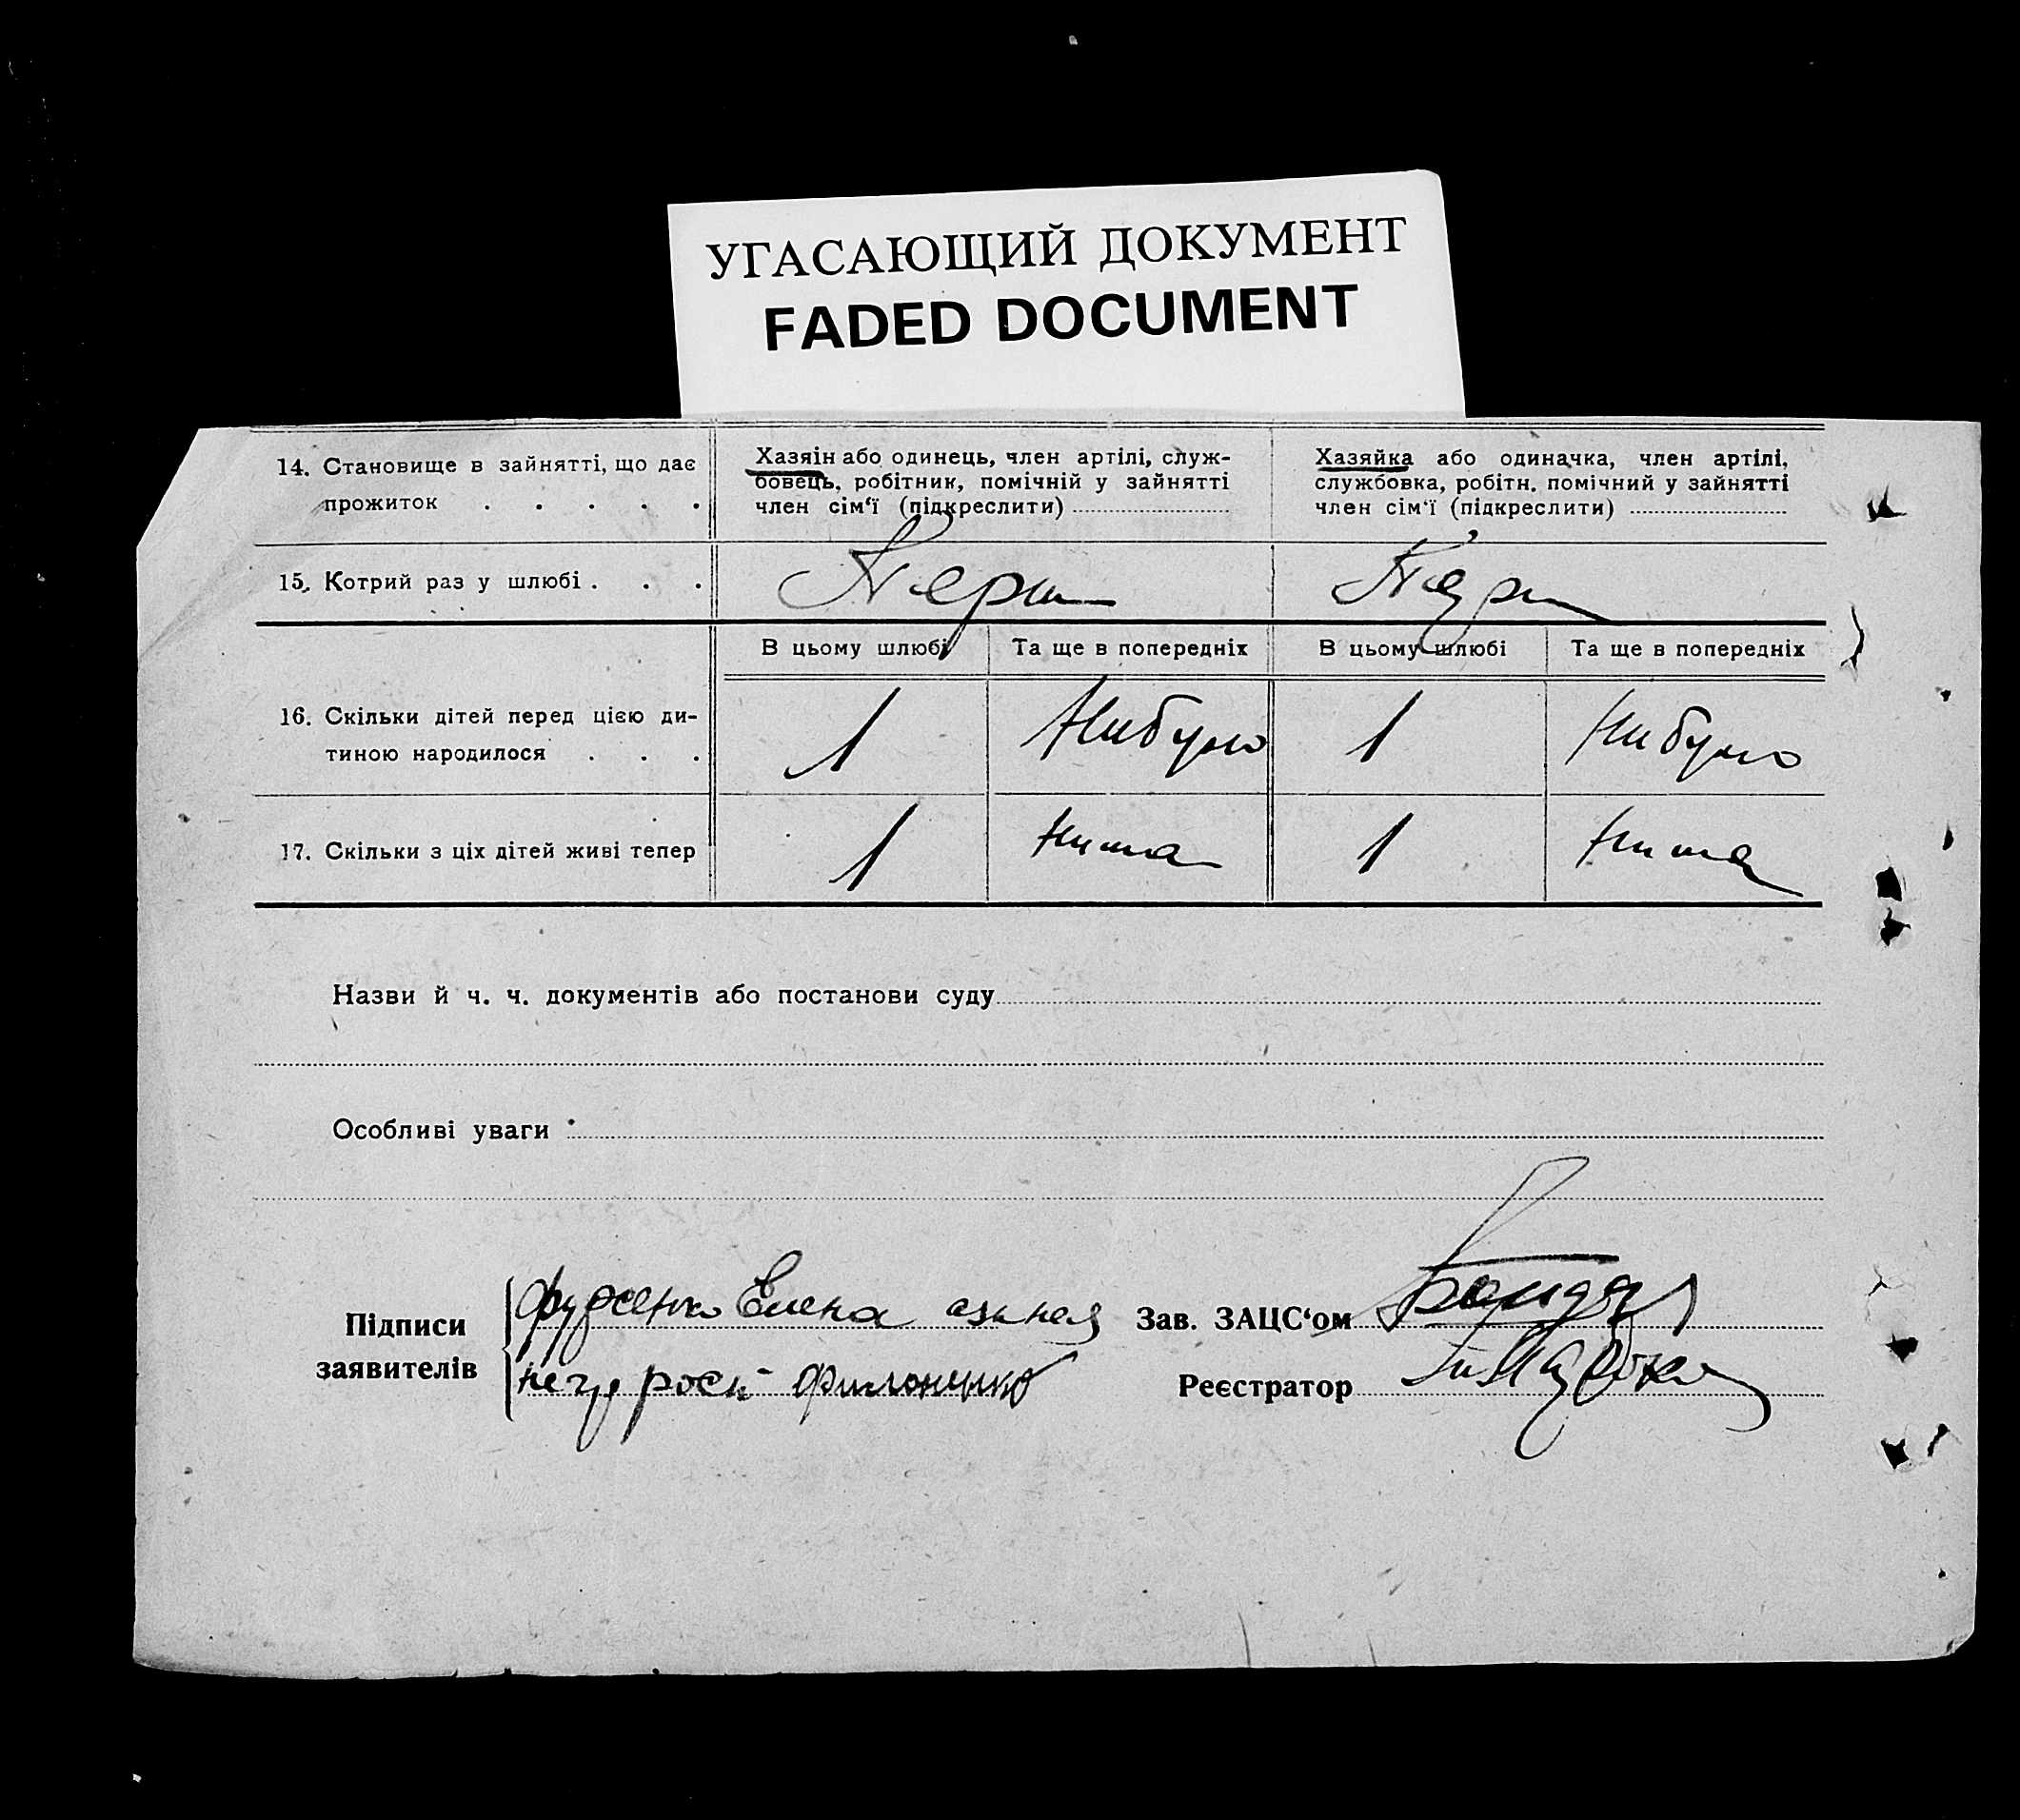 УГАСАЮЩИЙ ДОКУМЕНТ
FADED DOCUMENT
14. Становище в зайнятті, що дає
прожиток . . . . .
Хазяін або одинець, член артілі, служ-
бовець, робітник, помічній у зайнятті
член сім‘ї (підкреслити)
Хазяйка або одиначка, член артілі,
службовка, робітн. помічний у зайнятті
член сім‘ї (підкреслити)
15. Котрий раз у шлюбі . . .
Перш
Перш
В цьому шлюбі
Та ще в попередніх
В цьому шлюбі
Та ще в попередніх
16. Скільки дітей перед цією ди-
тиною народилося . . .
1
Нибуло
1
Нибуло
17. Скільки з ціх дітей живі тепер
1
Нима
1
Нима
Назви й ч. ч. документів або постанови суду
Особливі уваги
Підписи
заявителів
Елена
Зав. ЗАЦС‘ом
Реєстратор